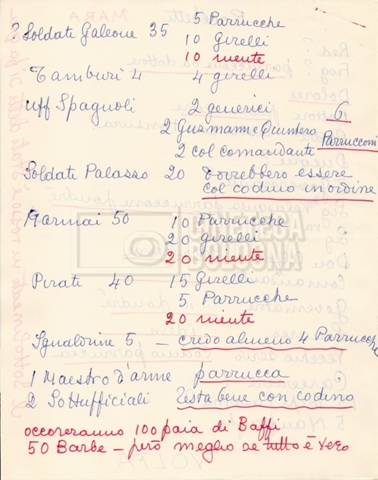 ? Soldate Galeone 35 5 Parrucche
10 Girelli
10 niente
Tamburi 4 4 girelli
Uff Spagnoli 2 generici 6
2 Gusmann e Quintero Parrucconi
2 col comandante
Soldate Palasso 20 dovrebbero essere
col codino in ordine
Marinai 50 10 Parrucche
20 girelli
20 niente
Pirati 40 15 Girelli
5 Parrucche
20 niente
Sgualdrine 5 - credo almeno 4 Parrucche
1 Maestro d'arme parrucca
2 Sottufficiali Testa bene con codino
occoreranno 100 paia di Baffi
50 Barbe - però meglio se tutto è vero